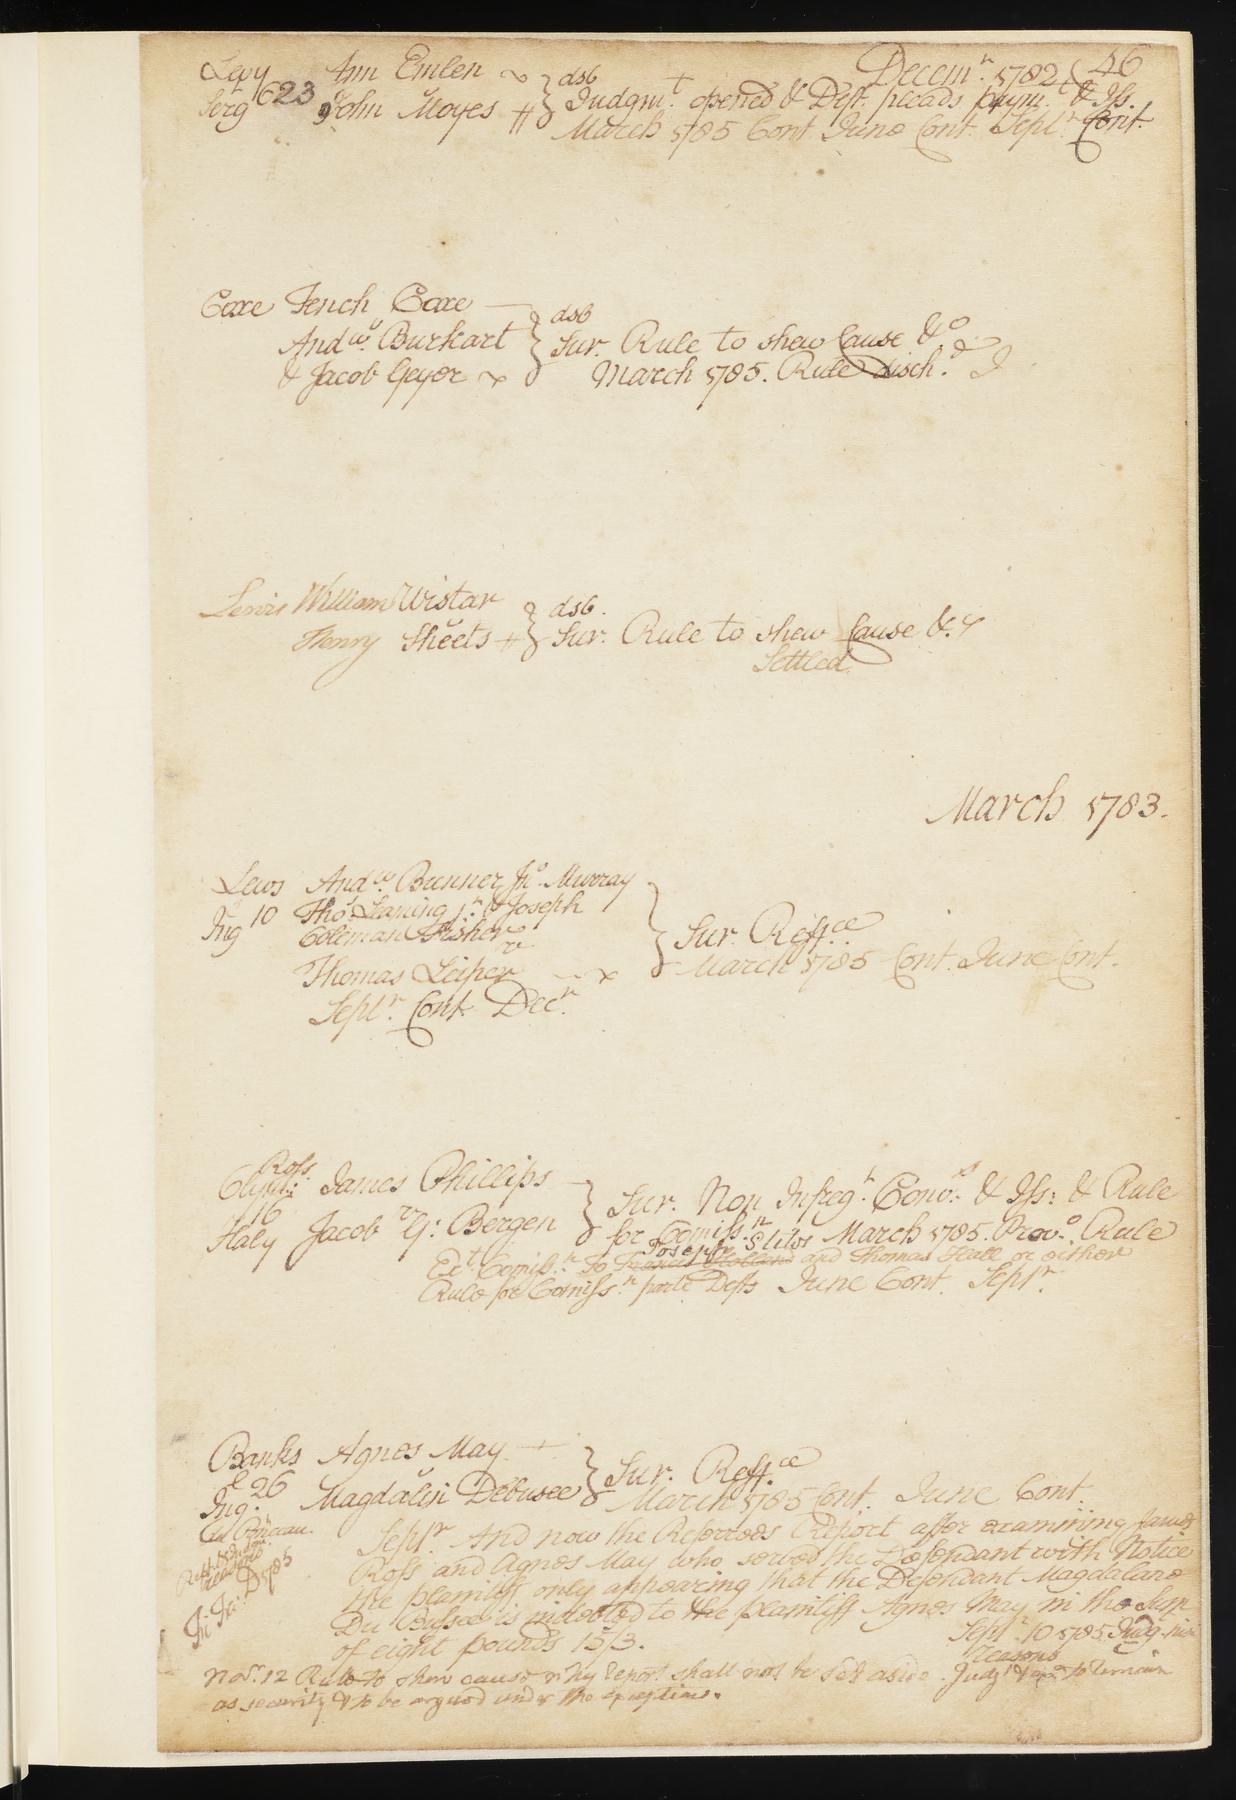 Decemr. 1782 (46
Levy Ann Emlen dsb
Serg 623 John Moyes Judgmt. opened & Deft. pleads paymt. & Iss.
March 1785 Cont June Cont. Septr. Cont.
Coxe Tench Coxe dsb
Andw. Burkart Sur. Rule to shew Cause &c
& Jacob Geyer March 1785. Rule disch.d
Lewis William Wistar dsb.
Henry Sheets Sur. Rule to shew Cause &c
Settled
March 1783.
Lews Andw. Bunner Jno. Murray
Ing 10 Thos. Leaming jr. & Joseph
Coleman Fisher Sur. Reffce
Thomas Leiper March 1785 Cont. June Cont.
Septr. Cont. Decr.
Ross
James Phillips Sur. Non Infregt. Convs. & Iss: & Rule
16
Haly Jacob V: Bergen for Comissn. March 1785. Provo. Rule
Joseph Stiles
Ext. Comissn. to Francis Holland and Thomas Hall or either
Rule for Comissn. parte Defts June Cont. Septr.
Banks Agnes May Sur. Reffce
26
Ing. Magdalin Debusee March 1785 Cont. June Cont.
Septr. And now the Referrees Report after examining James
Ross and Agnes May who served the Defendant with Notice
the plaintiff only appearing that the Defendant Magdalane
Du Bussee is indebted to the plaintiff Agnes May in the Sum
of eight pounds 15/3. Septr. 10 1785 Judg. nisi
reasons
Novr. 12 Rule to shew cause why report shall not be set aside. Judgt to remain
as security & to be argued undr the exceptions.